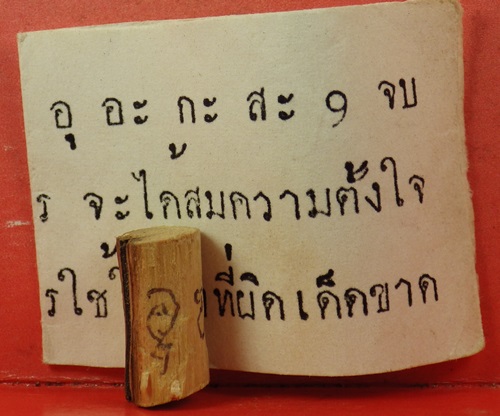 อุ อะ กะ สะ 9 จบ
ร จะได้สมความตั้งใจ
รใช้ ที่ผิดเด็ดขาด